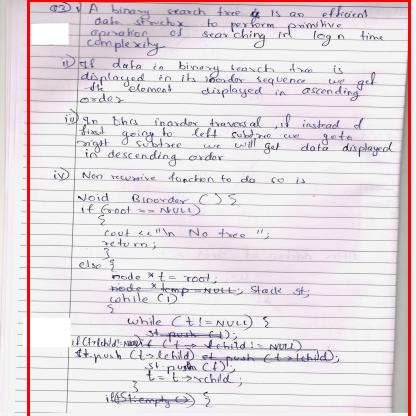 Q3) i) A binary search tree is an efficient
data structure to perform primitive
operation of searching in log n time
complexity
ii) If data in binary search tree is
displayed in its inorder sequence we get
the element displayed in ascending
order
iii) In this inorder traversal, if instead of
first going to left subtree we goto
right subtree we will get data displayed
in descending order
iv) Non recursive function to do so is
void Binorder () {
if (root == NULL)
{
cout << "\n No tree ";
return;
}
else {
node *t = root;
node *temp = NULL; Stack st;
while (1)
{
while (t != NULL) {
st.push (t);
if(t->lchild!=NULL) if (t -> lchild != NULL)
st.push (t->lchild) st.push (t->lchild);
st.push (t);
t = t->rchild;
}
if(St.empty()) {